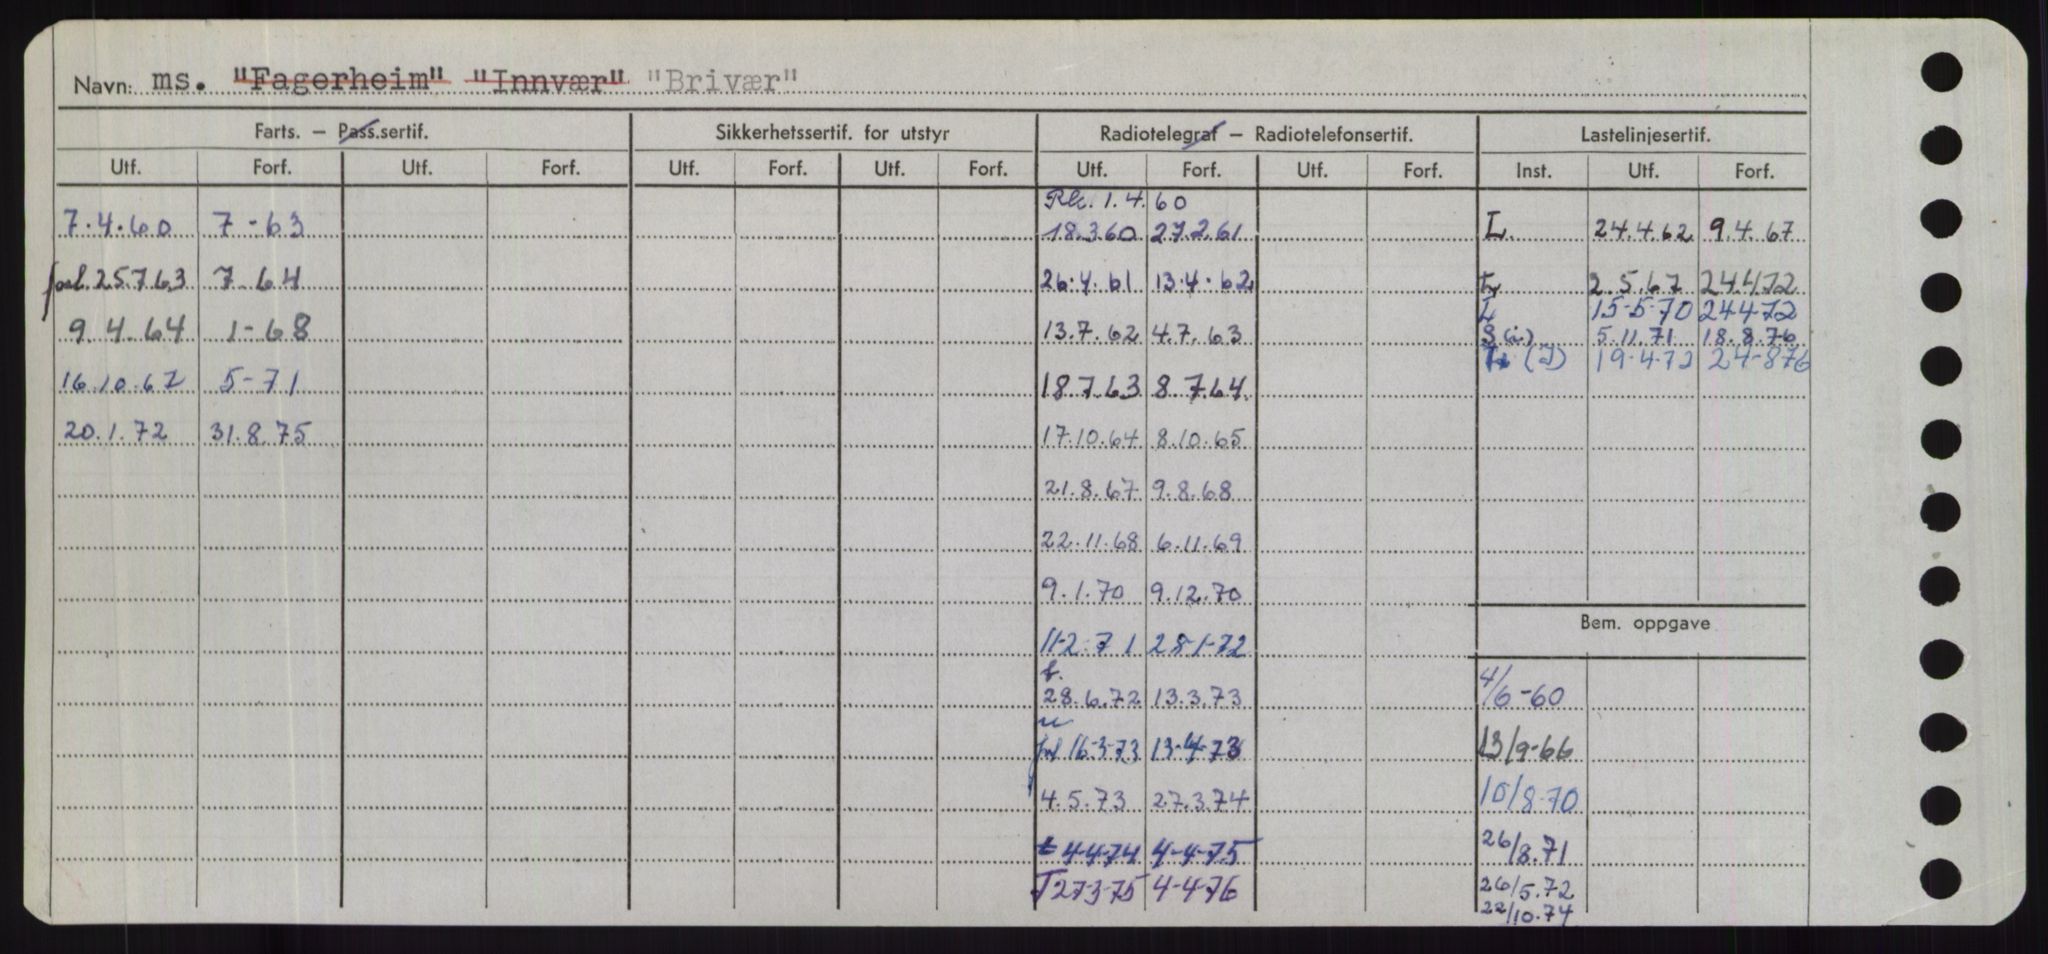 Navn: ms. "Fagerheim" "Innvær" "Brivær"
Farts. – Pass.sertif. Sikkerhetssertif. for utstyr Radiotelegraf – Radiotelefonsertif. Lastelinjesertif.
Utf. Forf. Utf. Forf. Utf. Forf. Utf. Forf. Utf. Forf. Utf. Forf. Inst. Utf. Forf.
Rk. 1.4.60
7.4.60 7-63 18.3.60 27.2.61 L. 24.4.62 9.4.67
forl. 25.7.63 7-64 26.4.61 13.4.62 L 2.5.67 24.4.72
L 15-5-70 24-4-72
9.4.64 1-68 13.7.62 4.7.63 S(i) 5.11.71 18.8.76
(I) 19-4-72 24-8-76
16.10.67 5-71 18.7.63 8.7.64
20.1.72 31.8.75 17.10.64 8.10.65
21.8.67 9.8.68
22.11.68 6.11.69
9.1.70 9.12.70
Bem. oppgave
11-2-71 28-1-72
f.
28.6.72 13.3.73 4/6-60
fol 16-3-73 13-4-73 13/9-66
4.5.73 27.3.74 10/8-70
t 4-4-74 4-4-75 26/8.71
T 27-3-75 4-4-76 26/5.72
22/10.74